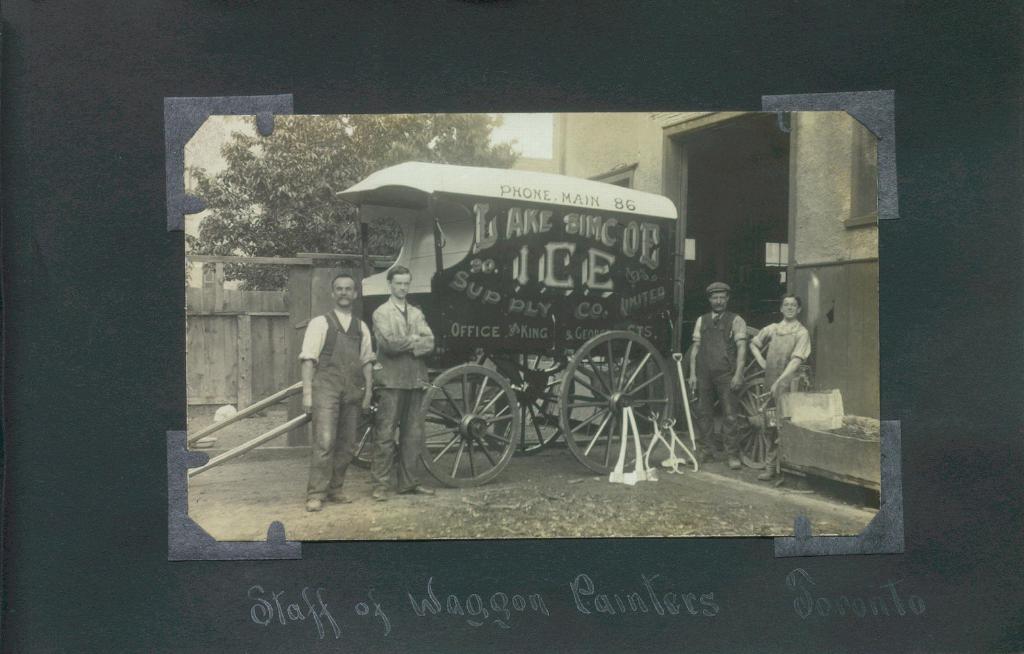 PHONE. MAIN 86
LAKE SIMCOE
ICE
SUPPLY CO. LIMITED
OFFICE KING & GEORGE STS.
Staff of Waggon Painters Toronto